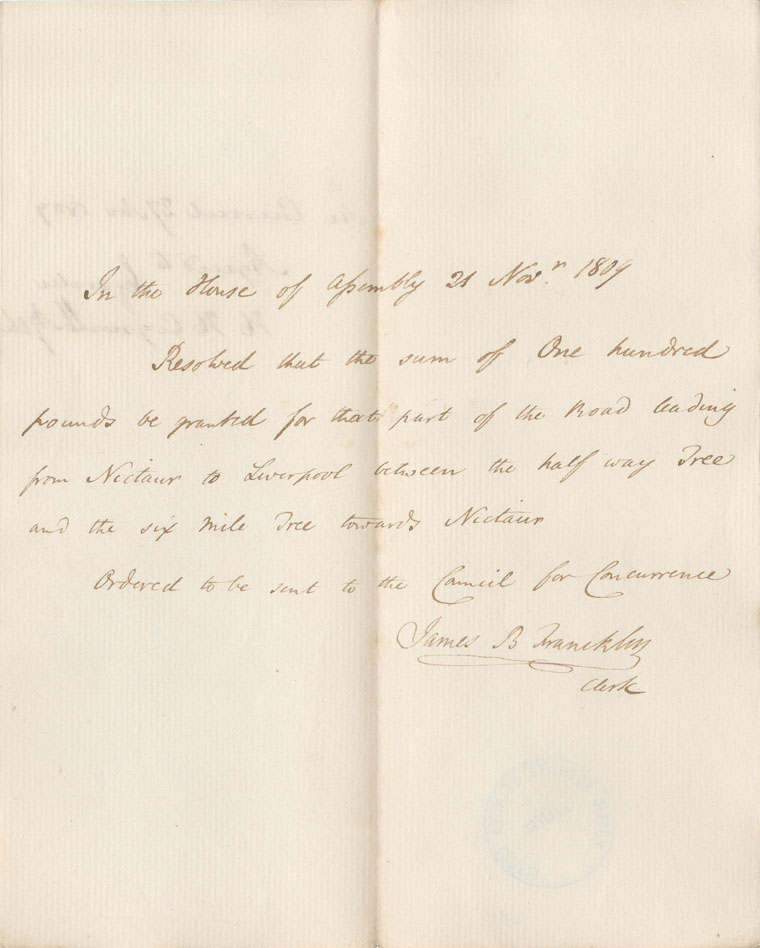 In the House of Assembly 21 Nov.r 1809
Resolved that the sum of One hundred
pounds be granted for that part of the Road leading
from Nictaur to Liverpool between the half way Tree
and the six mile Tree towards Nictaur
Ordered to be sent to the Council for Concurrence
James B Franckliy
Clerk